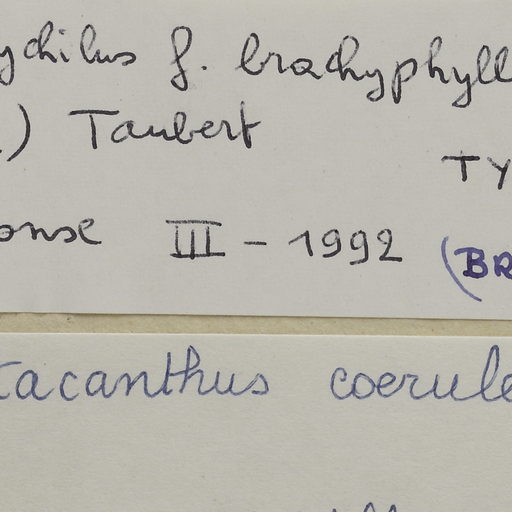 ychilus f. brachyphyll
.) Taubert
TY
onse III - 1992 (BR
tacanthus coerule